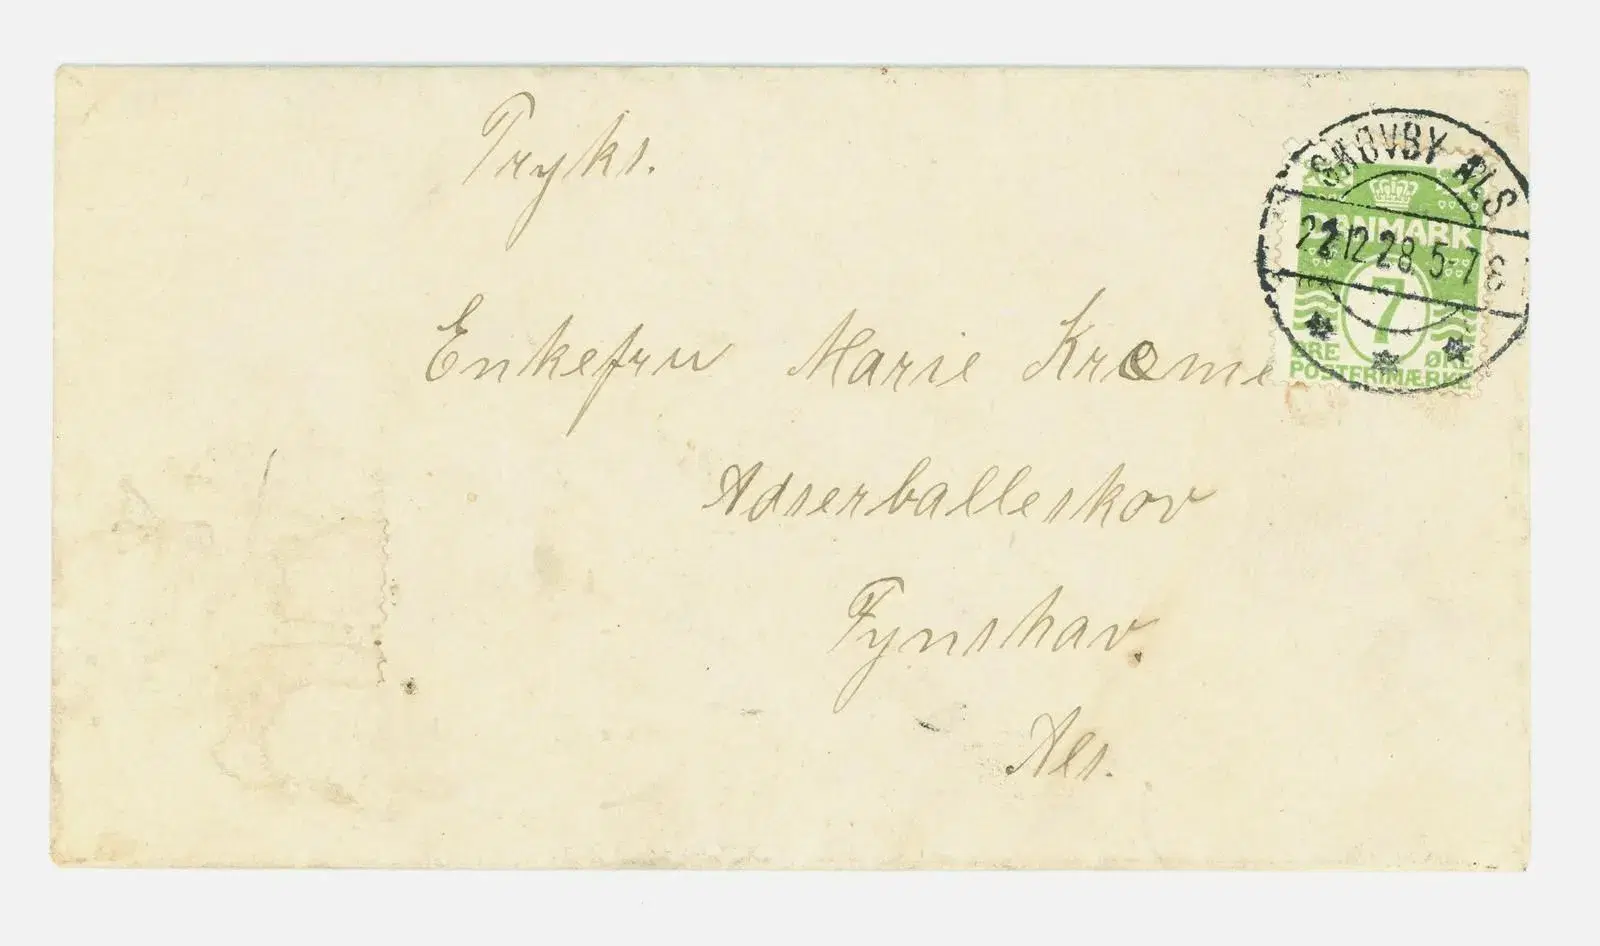 Tryks.
SKOVBY ALS
22.12.28.5-7
DANMARK
7
ØRE ØRE
POSTFRIMÆRKE
Enkefru Marie
Adserballeskov
Fynshav.
Als.